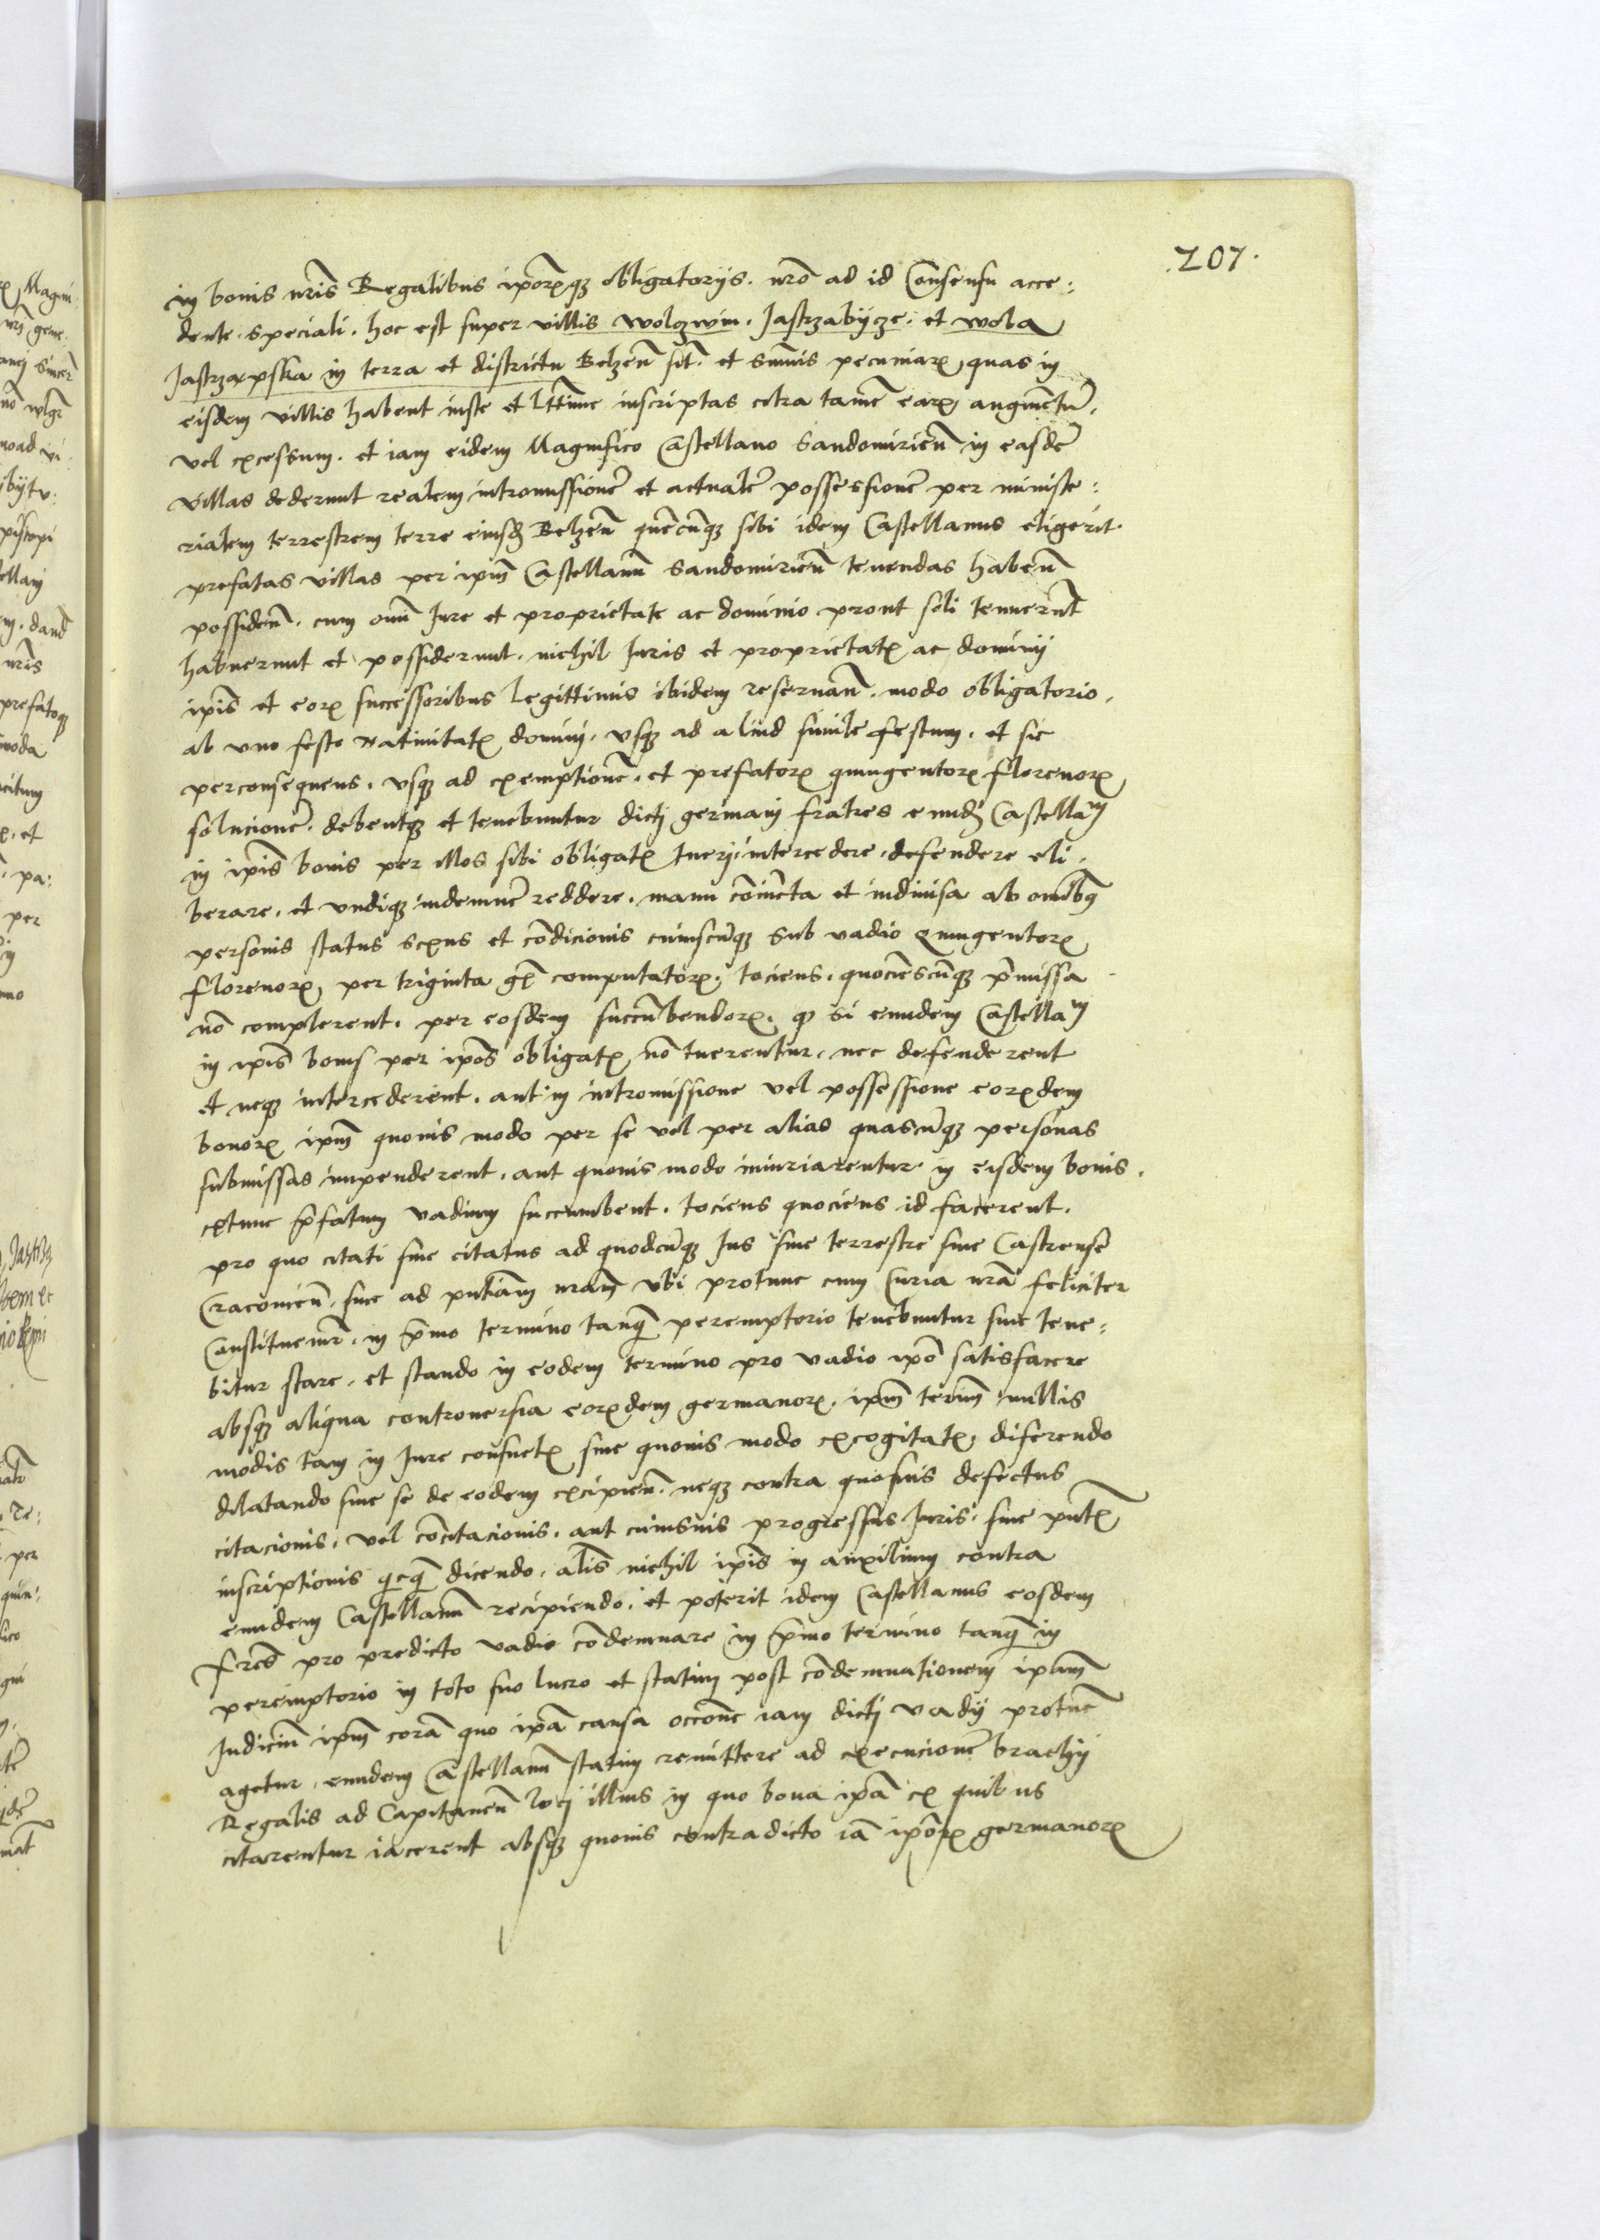 207.
in bonis nr̃is Regalibus ip̃orꝫqꝫ obligatorijs. nr̃o ad id Consensu acce:
dente. speciali. hoc est super villis wolczwin. Jastrzabycze. et wola
Jastrząpska in terra et districtu Belzeñ sit̃. et sum̃is pecuniarꝫ quas in
eisdem villis habent iuste et l̃ttime inscriptas citra tamẽ earꝫ augmẽtũ.
vel excessum. et iam eidem Magnifico Castellano Sandomirieñ in easdẽ
villas dederunt realem intromissionẽ et actualẽ possessionẽ per ministe:
rialem terrestrem terre eiusd̃ Belzeñ quẽcũqꝫ sibi idem Castellanus eligerit.
prefatas villas per ip̃m Castellanũ Sandomirieñ tenendas habeñ
possideñ. cum om̃i Jure et proprietate ac dominio prout soli tenuerũt
habuerunt et possiderunt. nichil Juris et proprietatꝫ ac dominij
ip̃is et eorꝫ successoribus legittimis ibidem reseruañ. modo obligatorio.
ab vno festo natiuitatꝫ domini. vsqꝫ ad aliud simile festum. et sic
perconsequens. vsqꝫ ad exemptionẽ. et prefatorꝫ quingentorꝫ florenorꝫ
solucionẽ. debentqꝫ et tenebuntur dicti germani fratres eund̃ Castellañ
in ip̃is bonis per illos sibi obligatꝫ tueri. intercedere. defendere eli.
berare. et vndiqꝫ indemnẽ reddere. manu cõiuncta et indiuisa ab om̃ibꝫ
personis status sexus et cõdicionis cuiuscũqꝫ sub vadio Quingentorꝫ
florenorꝫ per triginta gr̃ computatorꝫ. tociens. quociẽscũqꝫ p̃missa
nõ complerent. per eosdem succũbendorꝫ. qꝫ si eundem Castellañ
in ip̃is bonis per ip̃os obligatꝫ nõ tuerentur. nec defenderent
et neqꝫ intercederent. aut in intromissione vel possessione eorꝫdem
bonorꝫ ip̃m quouis modo per se vel per alias quascũqꝫ personas
submissas impenderent. aut quouis modo iniuriarentur in eisdem bonis.
extunc p̃fatum vadium succumbent. tociens quociens id facerent.
pro quo citati siue citatus ad quodcũqꝫ Jus siue terrestre siue Castrense
Cracouieñ. siue ad pñtiam nr̃am vbi protunc cum Curia nr̃a feliciter
Constituemr̃. in p̃mo termino tanq̃ peremptorio tenebuntur siue tene:
bitur stare. et stando in eodem termino pro vadio ip̃o satisfacere
absqꝫ aliqua controuersia eorꝫdem germanorꝫ. ip̃m term̃ nullis
modis tam in Jure consuetꝫ siue quouis modo excogitatꝫ. diferendo
dilatando siue se de eodem excipieñ. neqꝫ contra quosuis defectus
citacionis. vel cõcitacionis. aut cuiusuis progressus Juris. siue pñtꝫ
inscriptionis q̃cq̃ dicendo. al̃is nichil ip̃is in auxilium contra
eundem Castellanũ recipiendo. et poterit idem Castellanus eosdem
fr̃es pro predicto vadio cõdemnare in p̃mo termino tanq̃ in
peremptorio in toto suo lucro et statim post cõdemnationem ip̃am
Judiciũ ip̃m corã quo ip̃a causa occõne iam dicti vadij protũc
agetur. eundem Castellanũ statim remittere ad execucionẽ brachij
Regalis ad Capitaneũ loci illius in quo bona ip̃a ex quibus
citarentur iacerent absqꝫ quouis contradicto iã ip̃orꝫ germanorꝫ